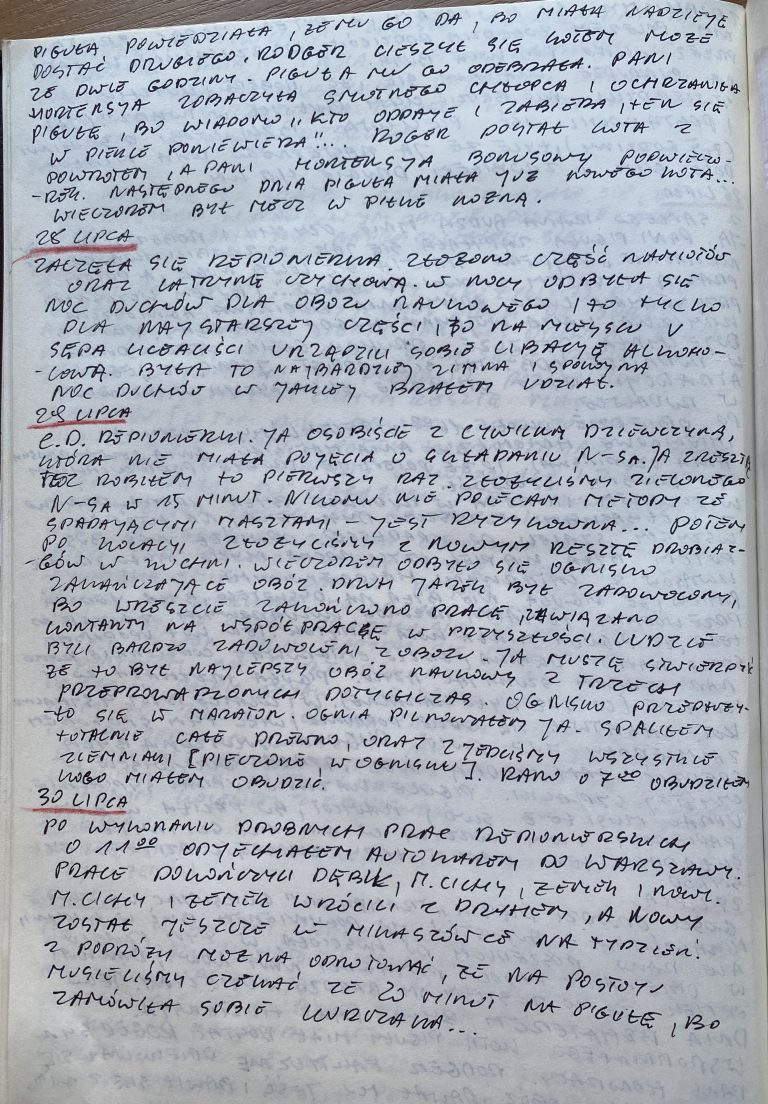 PIGUŁA POWIEDZIAŁA, ŻE MU GO DA, BO MIAŁA NADZIEJĘ
DOSTAĆ DRUGIEGO. RODGER CIESZYŁ SIĘ KOTEM MOŻE
ZE DWIE GODZINY. PIGUŁA MU GO ODEBRAŁA. PANI
HORTENSJA ZOBACZYŁA SMUTNEGO CHŁOPCA I OCHRZANIŁA
PIGUŁĘ, BO WIADOMO „KTO ODDAJE I ZABIERA, TEN SIĘ
W PIEKLE PONIEWIERA"... ROGER DOSTAŁ KOTA Z
POWROTEM, A PANI HORTENSJA BONUSOWY PODWIECZO-
-REK. NASTĘPNEGO DNIA PIGUŁA MIAŁA JUŻ NOWEGO KOTA...
WIECZOREM BYŁ MECZ W PIŁKĘ NOŻNĄ.
28 LIPCA
ZACZĘŁA SIĘ REPIONIERKA. ZŁOŻONO CZĘŚĆ NAMIOTÓW
ORAZ LATRYNĘ ZUCHOWĄ. W NOCY ODBYŁA SIĘ
NOC DUCHÓW DLA OBOZU NAUKOWEGO I TO TYLKO
DLA NAJSTARSZEJ CZĘŚCI, BO NA MIEJSCU U
SĘPA LICEALIŚCI URZĄDZILI SOBIE LIBACJĘ ALKOHO-
-LOWĄ. BYŁA TO NAJBARDZIEJ ZIMNA I SPOKOJNA
NOC DUCHÓW W JAKIEJ BRAŁEM UDZIAŁ.
29 LIPCA
C.D. REPIONIERKI. JA OSOBIŚCIE Z CYWILKĄ DZIEWCZYNĄ,
KTÓRA NIE MIAŁA POJĘCIA O SKŁADANIU N-SA. JA ZRESZTĄ
TEŻ ROBIŁEM TO PIERWSZY RAZ. ZŁOŻYLIŚMY ZIELONEGO
N-SA W 15 MINUT. NIKOMU NIE POLECAM METODY ZE
SPADAJĄCYMI MASZTAMI – JEST RYZYKOWNA... POTEM
PO KOLACJI ZŁOŻYLIŚMY Z NOWYM RESZTĘ DROBIAZ-
-GÓW W KUCHNI. WIECZOREM ODBYŁO SIĘ OGNISKO
ZAKAŃCZAJĄCE OBÓZ. DRUH JAREK BYŁ ZADOWOLONY,
BO WRESZCIE ZAKOŃCZONO PRACĘ, ZAWIĄZANO
KONTAKTY NA WSPÓŁPRACĘ W PRZYSZŁOŚCI. LUDZIE
BYLI BARDZO ZADOWOLENI Z OBOZU. JA MUSZĘ STWIERDZIĆ
ŻE TO BYŁ NAJLEPSZY OBÓZ NAUKOWY Z TRZECH
PRZEPROWADZONYCH DOTYCHCZAS. OGNISKO PRZEDŁUŻY-
-ŁO SIĘ W MARATON. OGNIA PILNOWAŁEM JA. SPALIŁEM
TOTALNIE CAŁE DREWNO, ORAZ ZJEDLIŚMY WSZYSTKIE
ZIEMNIAKI [PIECZONE W OGNISKU]. RANO O 7⁰⁰ OBUDZIŁEM
KOGO MIAŁEM OBUDZIĆ.
30 LIPCA
PO WYKONANIU DROBNYCH PRAC REPIONIERSKICH
O 11⁰⁰ ODJECHAŁEM AUTOKAREM DO WARSZAWY.
PRACE DOKOŃCZYLI DĘBIK, M.CICHY, ZEMEK I NOWY.
M.CICHY I ZEMEK WRÓCILI Z DRUHEM, A NOWY
ZOSTAŁ JESZCZE W MIKASZÓWCE NA TYDZIEŃ.
Z PODRÓŻY MOŻNA ODNOTOWAĆ, ŻE NA POSTOJU
MUSIELIŚMY CZEKAĆ ZE 20 MINUT NA PIGUŁĘ, BO
ZAMÓWIŁA SOBIE KURCZAKA...